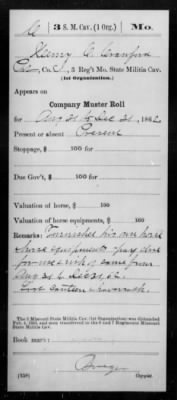 3 S. M. Cav. (1 Org.) Mo.
Henry C. Crawford
Co. C, 3 Reg't Mo. State Militia Cav.
(1st Organization.)
Appears on
Company Muster Roll
for Aug 31 to Dec 31, 1862
Present or absent Present
Stoppage, $ 100 for
Due Gov't, $ 100 for
Valuation of horse, $ 100
Valuation of horse equipments, $ 100
Remarks: Furnished his own horse
horse equipments pay due
for use & risk of same from
Aug 31 to Dec 31, 62.
Lost canteen & haversack.
Book mark:
(358) Copyist.